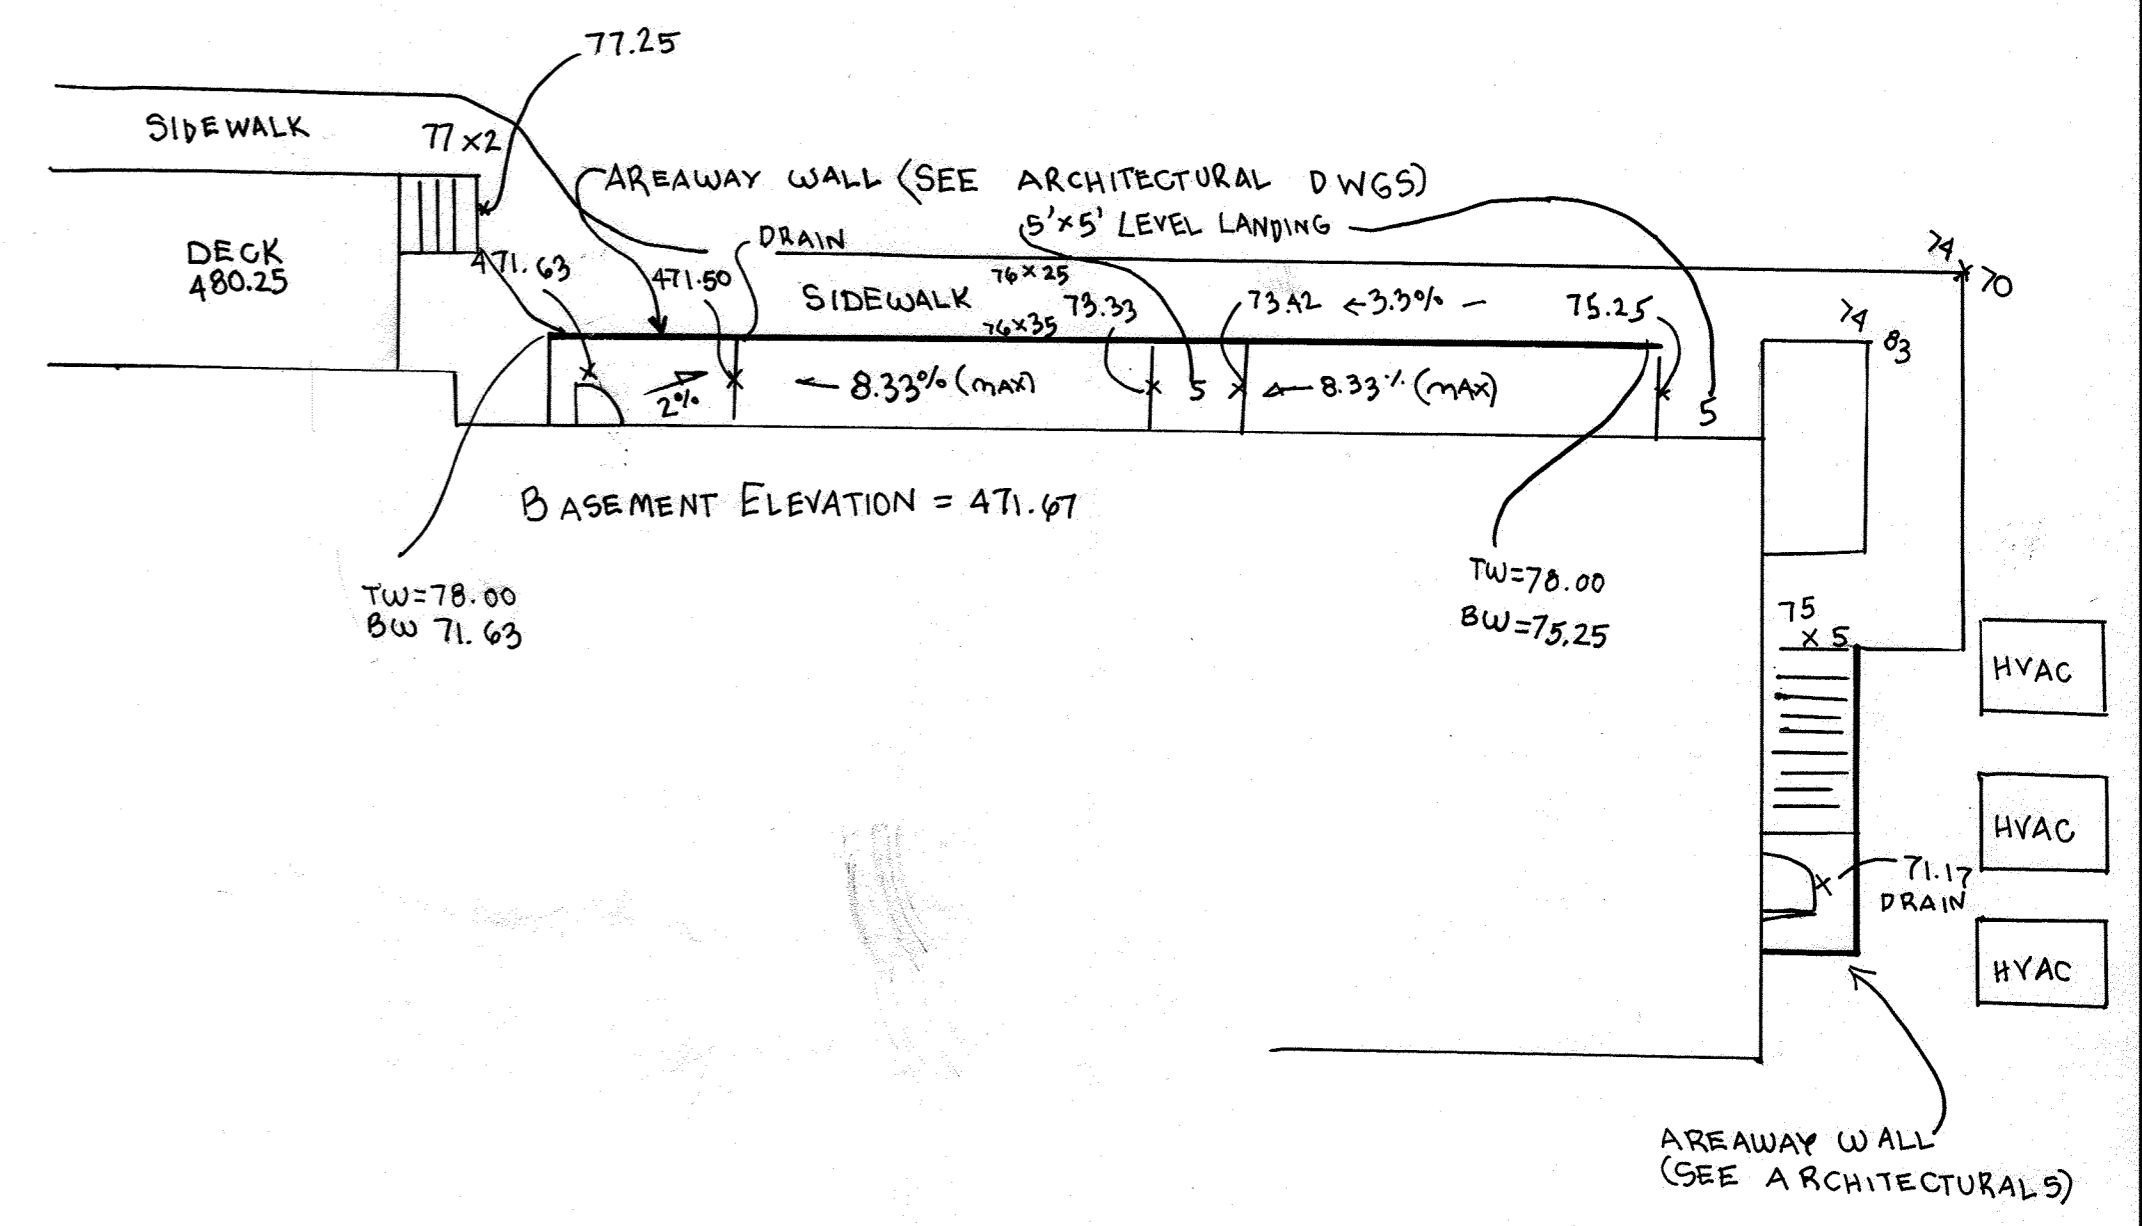 77.25
SIDEWALK
77 x 2
AREAWAY WALL (SEE ARCHITECTURAL DWGS)
5'x5' LEVEL LANDING
DRAIN
DECK
480.25
471.63
471.50
SIDEWALK
76 x 25
76 x 35
73.33
73.42
←3.3%
75.25
74
x 70
74
83
2%
← 8.33% (MAX)
5
← 8.33% (MAX)
5
BASEMENT ELEVATION = 471.67
TW=78.00
BW 71.63
TW=78.00
BW=75.25
75
x 5
HVAC
HVAC
71.17
DRAIN
HVAC
AREAWAY WALL
(SEE ARCHITECTURALS)